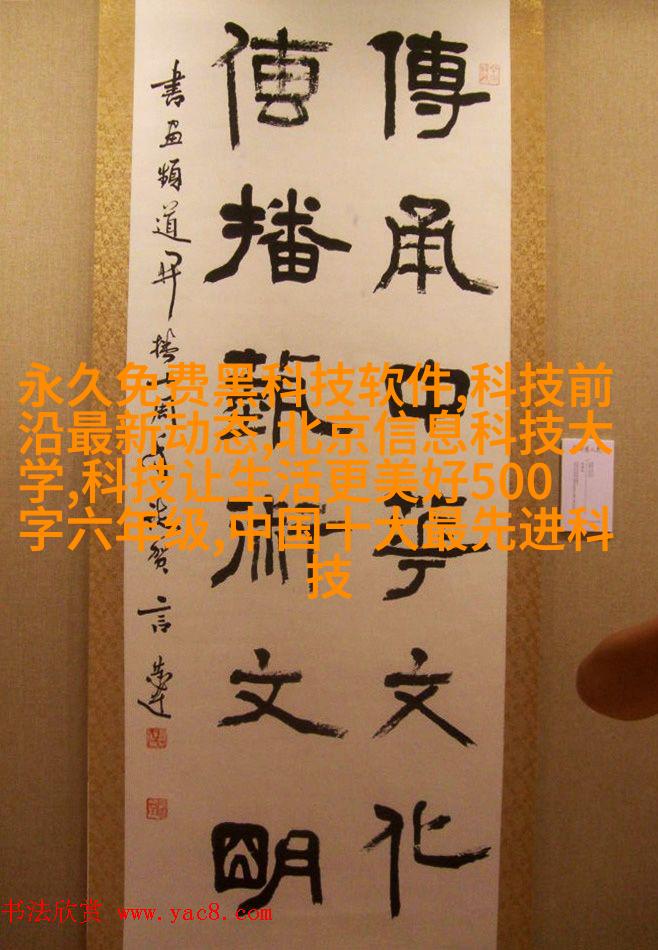 傳承中華文化
傳播藝術文明
書畫頻道開播
法賀
言恭達
永久免费黑科技软件,科技前
沿最新动态,北京信息科技大
学,科技让生活更美好500
字六年级,中国十大最先进科
技
书法欣赏 www.yac8.com